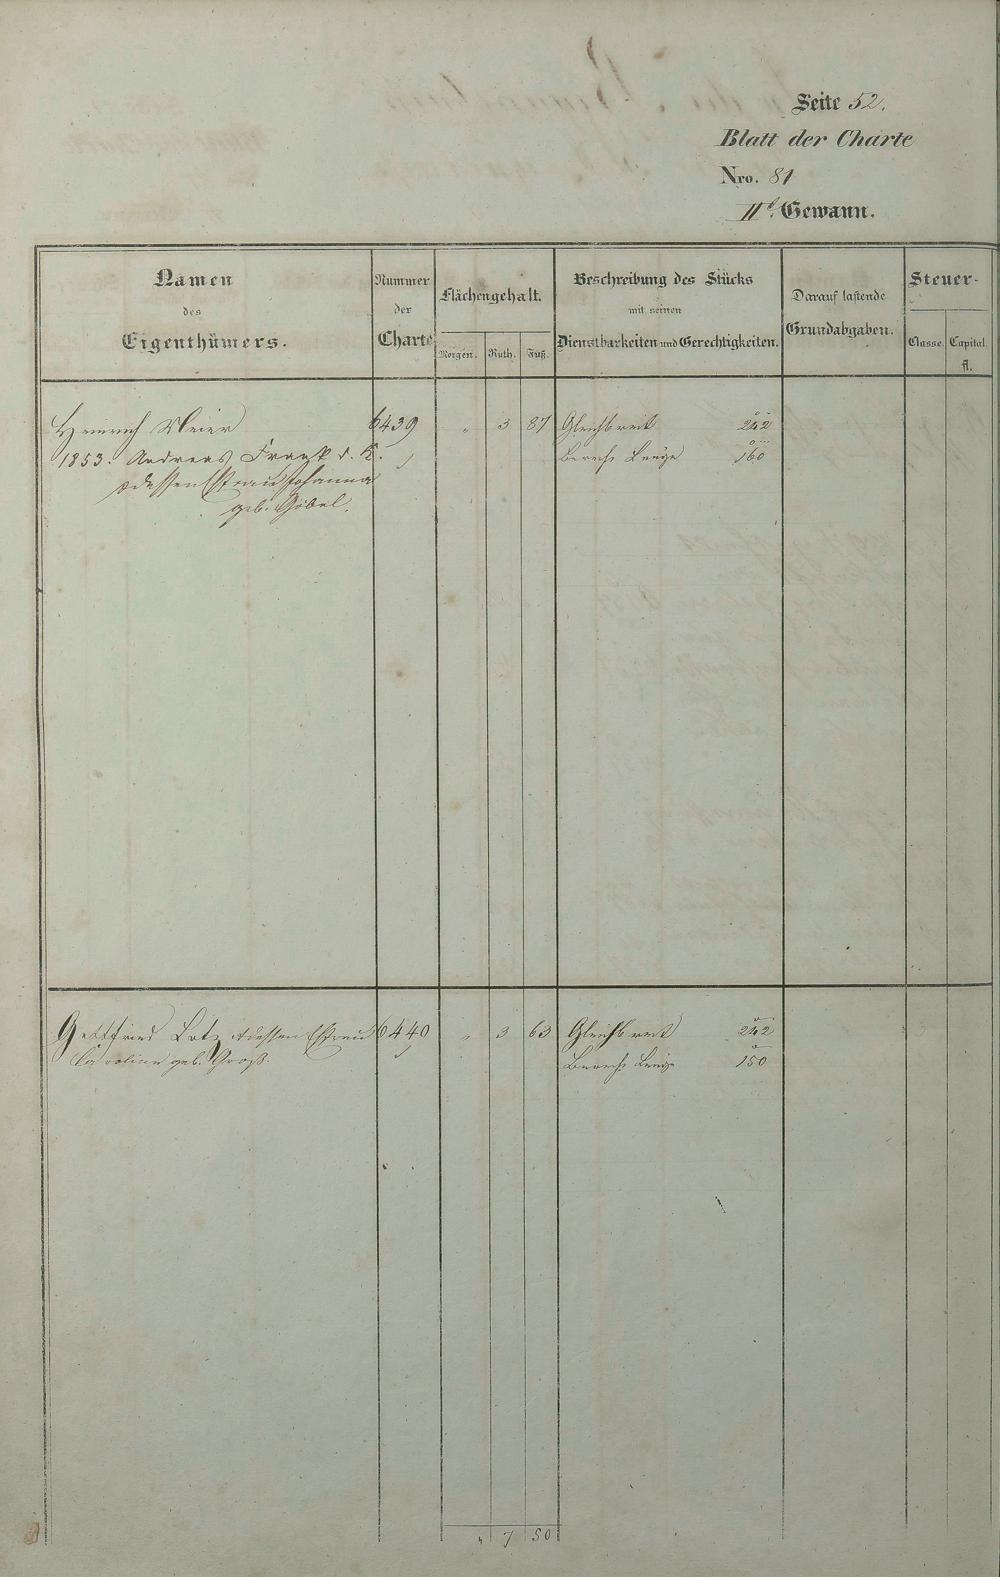 Seite 52.
Blatt der Charte
Nro. 81
IIt. Gewann.
Namen
des
Eigenthümers.
Nummer
der
Charte
Flächengehalt.
Morgen. Ruth. Fuß.
Beschreibung des Stücks
mit seinen
Dienstbarkeiten und Gerechtigkeiten.
Darauf lastende
Grundabgaben.
Steuer-
Classe. Capital.
fl.
Heinrich Meier 6439 „ 3 87 Gleichbreit 242
1853. Andreas Frank d. K. Länge 160
u dessen Ehefrau Johanna
geb. Göbel.
Gottfried Lotz u dessen Ehefrau 6440 „ 3 63 Gleichbreit 242
Caroline geb. Groß. Länge 150
„ 7 50